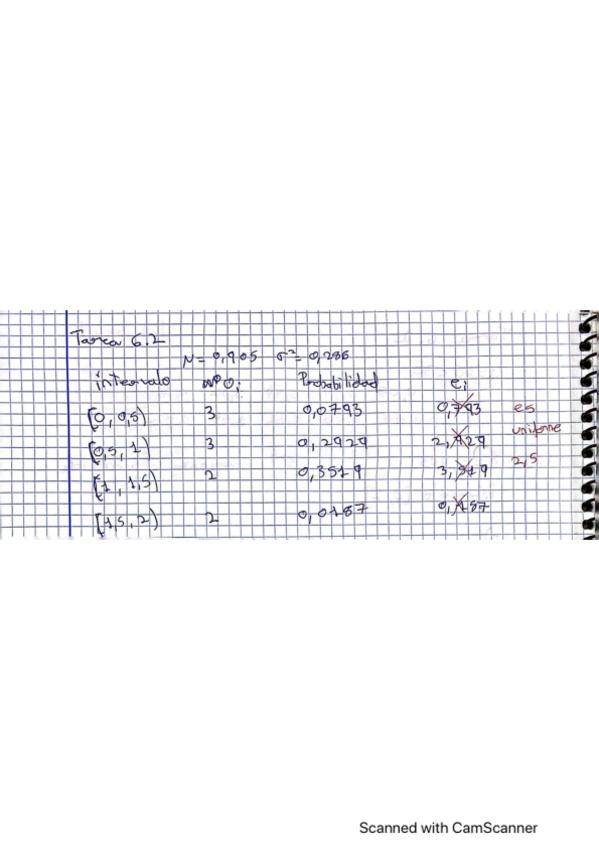 Tarea 6.2
N = 0,905 σ² = 0,286
intervalo nº Oi Probabilidad ei
(0, 0,5) 3 0,0793 0,793 es
uniforme
(0,5, 1) 3 0,2929 2,929
2,5
(1, 1,5) 2 0,3519 3,519
(1,5, 2) 2 0,0187 0,187
Scanned with CamScanner